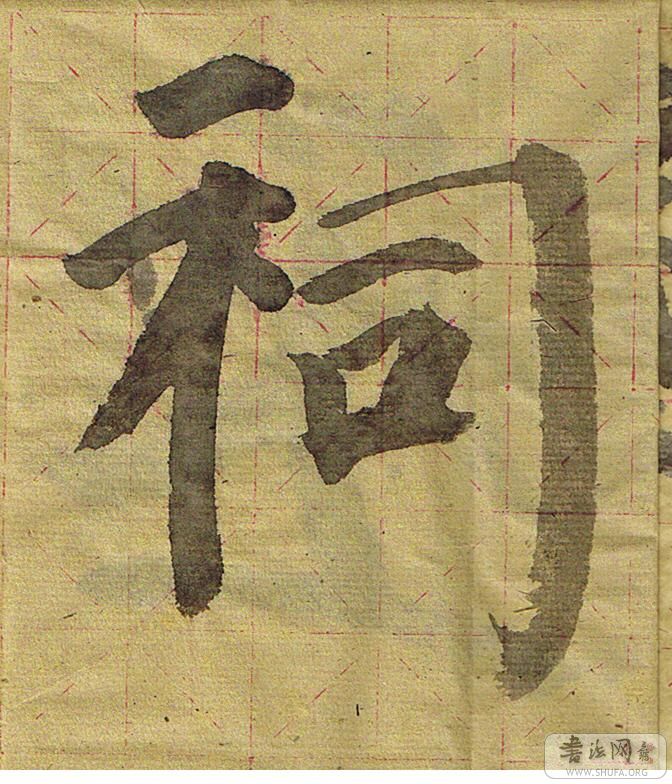 祠
书法网
WWW.SHUFA.ORG